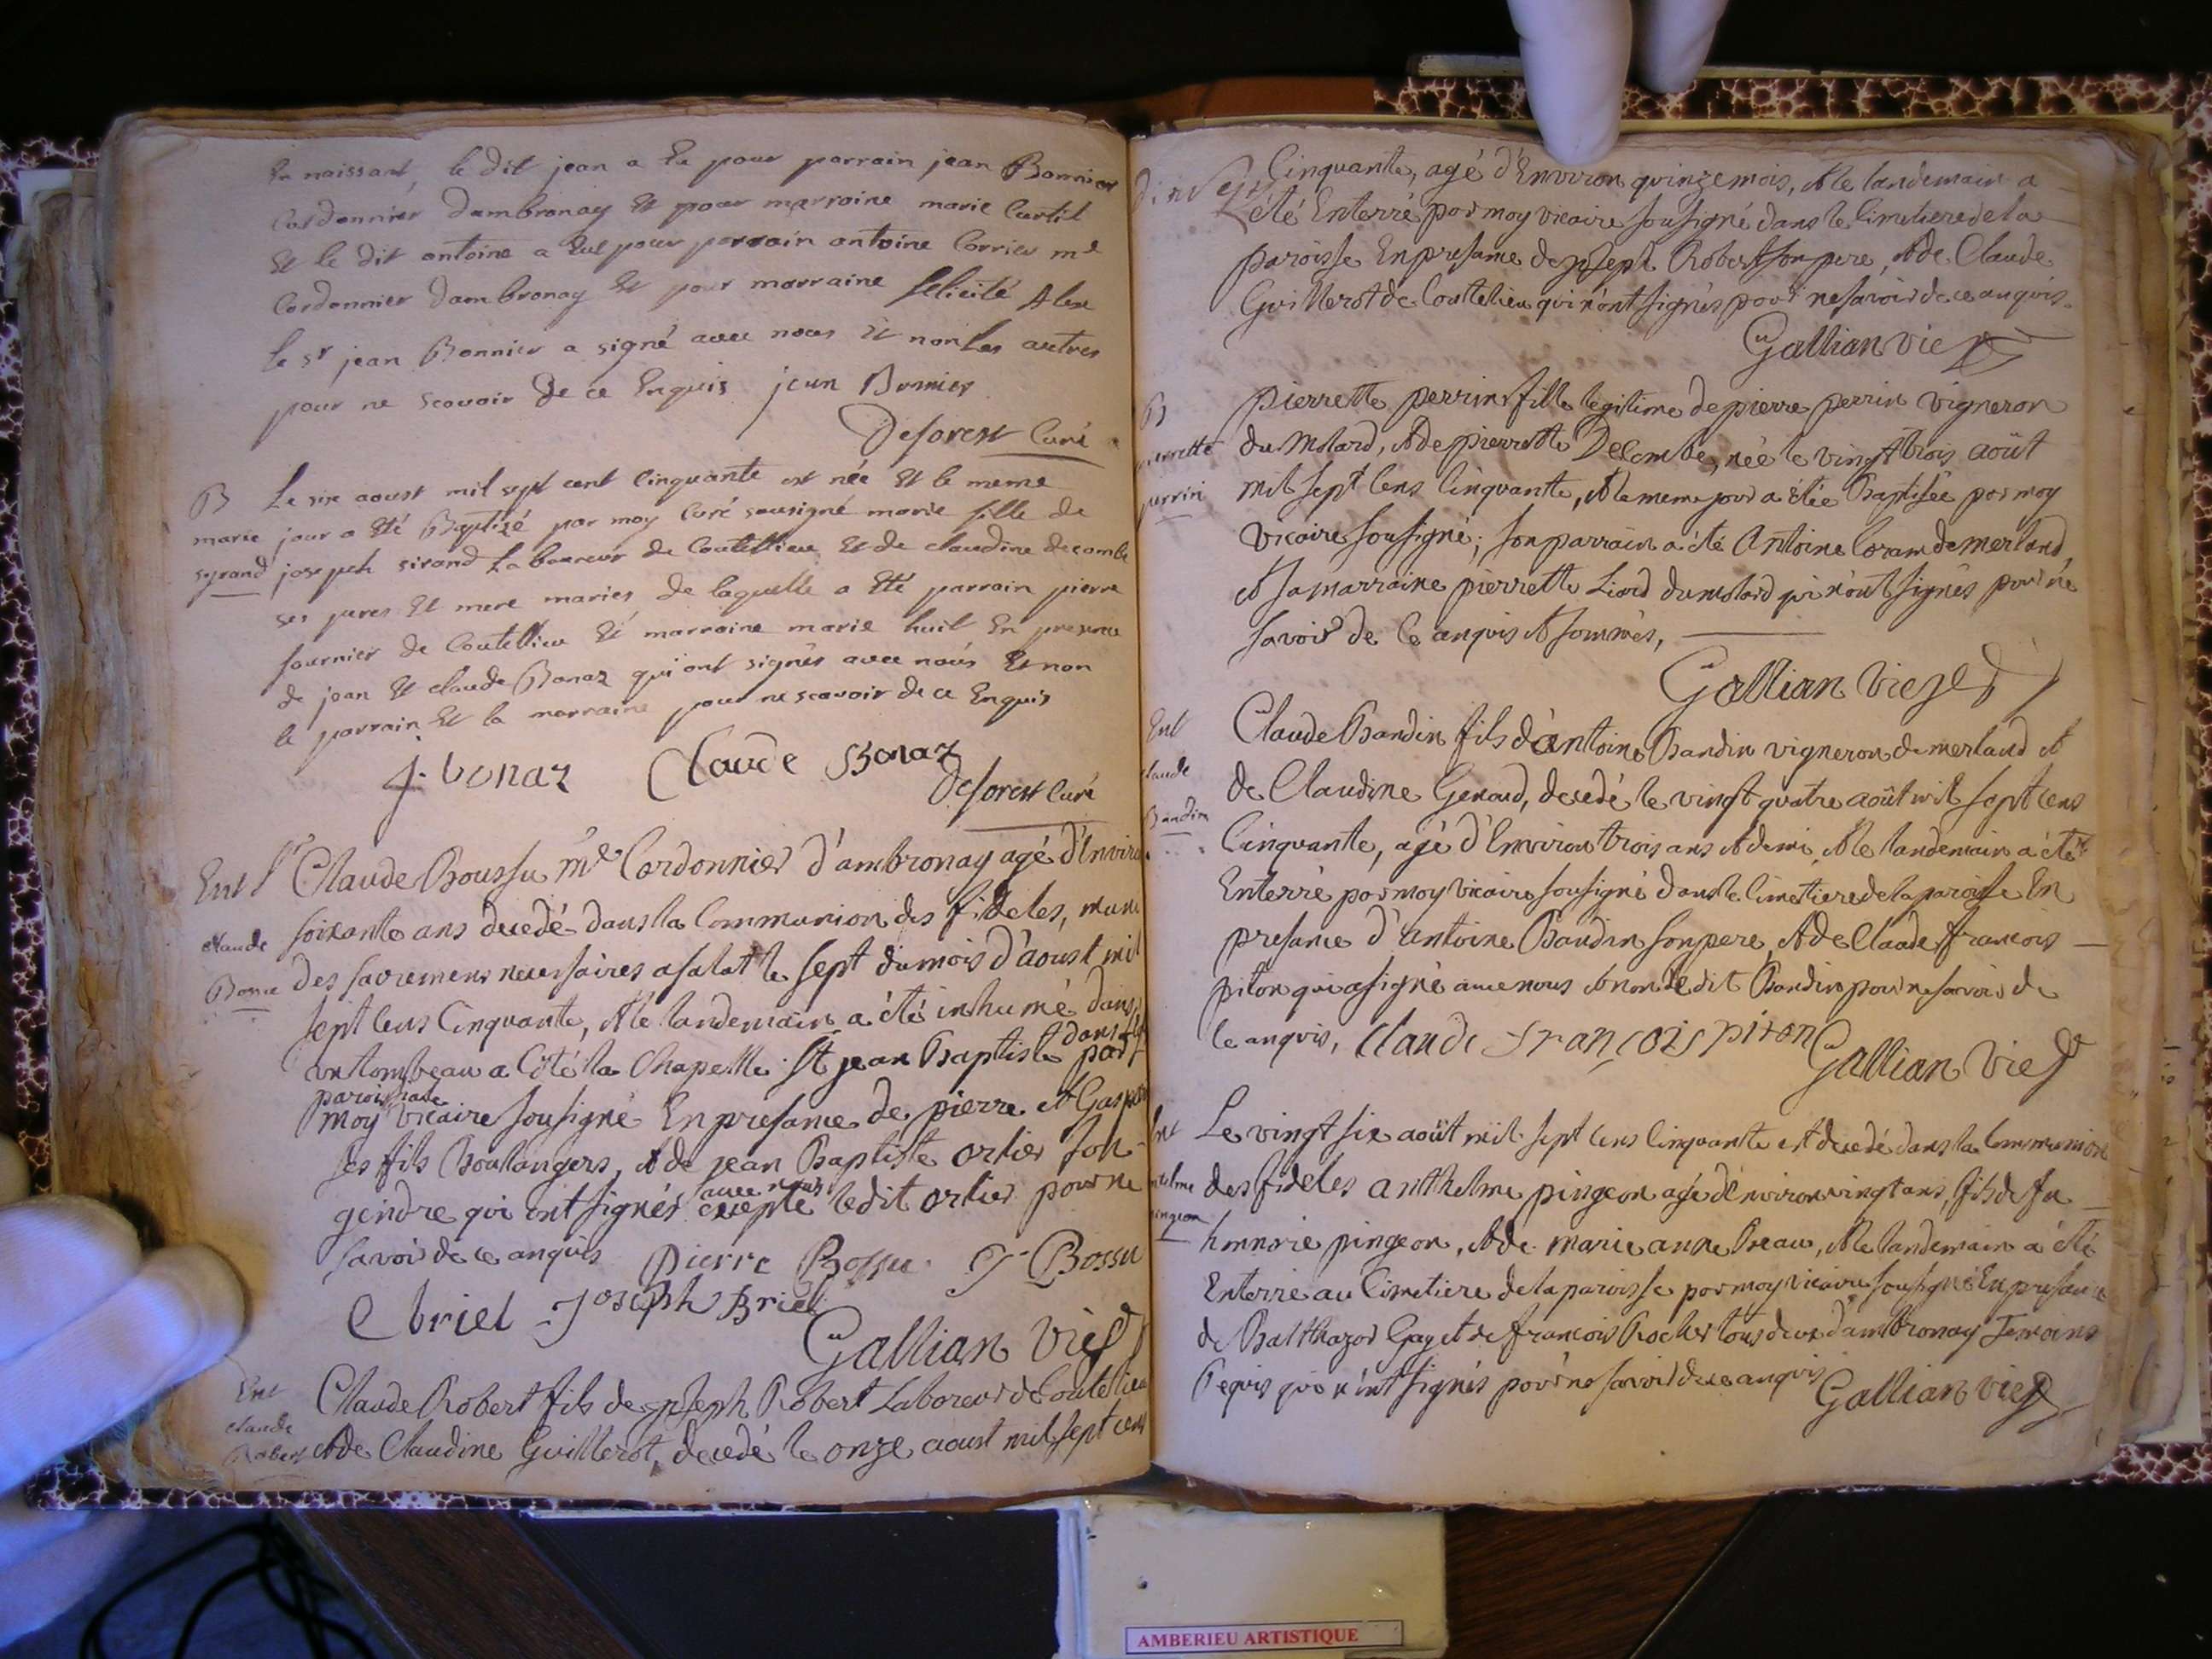 En naissant, le dit jean a Eu pour parrain jean Bonnier
Cordonnier dambronay Et pour marraine marie Curtil
Et le dit antoine a Eut pour parrain antoine Corrier md
Cordonnier dambronay Et pour marraine felicité Alex
le sr jean Bonnier a signé avec nous Et non les autres
pour ne scavoir de ce Enquis jean Bonnier
Deforest Curé
B
marie
syrand
Le six aoust mil sept cent Cinquante est née Et le meme
jour a Eté Baptizé par moy Curé sousigné marie fille de
joseph sirand Laboureur de Coutellieu Et de claudine decombe
ses peres Et mere maries de laquelle a Eté parrain pierre
fournier de Coutellieu Et marraine marie huit En presence
de jean Et claude Bonaz qui ont signés avec nous Et non
le parrain Et la marraine pour ne scavoir de ce Enquis
j. bonaz Claude Bonaz
deforest Curé
Ent
claude
Sr Claude Boussu me Cordonnier d'ambronay agé d'Environ
soixante ans decedé dans la Communion des fideles, muni
des sacremens necessaires a salut le sept du mois d'aoust mil
sept cens Cinquante, et le landemain a été inhumé dans
un tombeau a Côté la Chapelle St jean Baptiste dans
paroissiale par
moy vicaire sousigné En presance de pierre et
ses fils Boulangers, et de jean Baptiste ortier son
gendre qui ont signés avec nous excepte ledit ortier pour ne
savoir de ce anquis Pierre Bossu. J Bossu
C briel Joseph Briel
Gallian vic
Ent
claude
Robert
Claude Robert fils de joseph Robert Laboreur de Coutelieu
et de Claudine Guillerot, decedé le onze aoust mil sept cens
Cinquante, agé d'Environ quinze mois, et le landemain a
été Enterré par moy vicaire sousigné dans le Cimetiere de la
paroisse En presance de joseph Robert son pere, et de Claude
Guillerot de Coutelieu qui n'ont signés pour ne savoir de ce anquis.
Gallian vic
B
pierrette
perrin
pierrette perrin fille legitime de pierre perrin vigneron
du Molard, et de pierrette Decombe, née le vingt trois août
mil sept cens Cinquante, et le meme jour a étée Baptisée par moy
vicaire sousigné; son parrain a été Antoine Coram de merland,
et sa marraine pierrette Liord du molard qui n'ont signés pour ne
savoir de Ce anquis et sommés,
Gallian vic
Ent
claude
Bandin
Claude Bandin fils d'antoine Bandin vigneron de merland et
de Claudine Genoud, decedé le vingt quatre août mil sept cens
Cinquante, agé d'Environ trois ans et demi, et le landemain a été
Enterré par moy vicaire sousigné dans le Cimetiere de la paroisse En
presance d'antoine Bandin son pere, et de Claude françois
piton qui a signé avec nous et non ledit Bandin pour ne savoir de
Ce anquis, Claude françois piton
Gallian vic
Ent
anthelme
pingeon
Le vingt six août mil sept cens Cinquante est decedé dans la Communion
des fideles anthelme pingeon agé d'Environ vingt ans, fils de fu
honnorie pingeon, et de marie anne, et le landemain a été
Enterré au Cimetiere de la paroisse par moy vicaire sousigné En presance
de Balthazar Gayet et de francois Rocher tous deux d'ambronay Temoins
Requis qui n'ont signés pour ne savoir de ce anquis
Gallian vic
AMBERIEU ARTISTIQUE